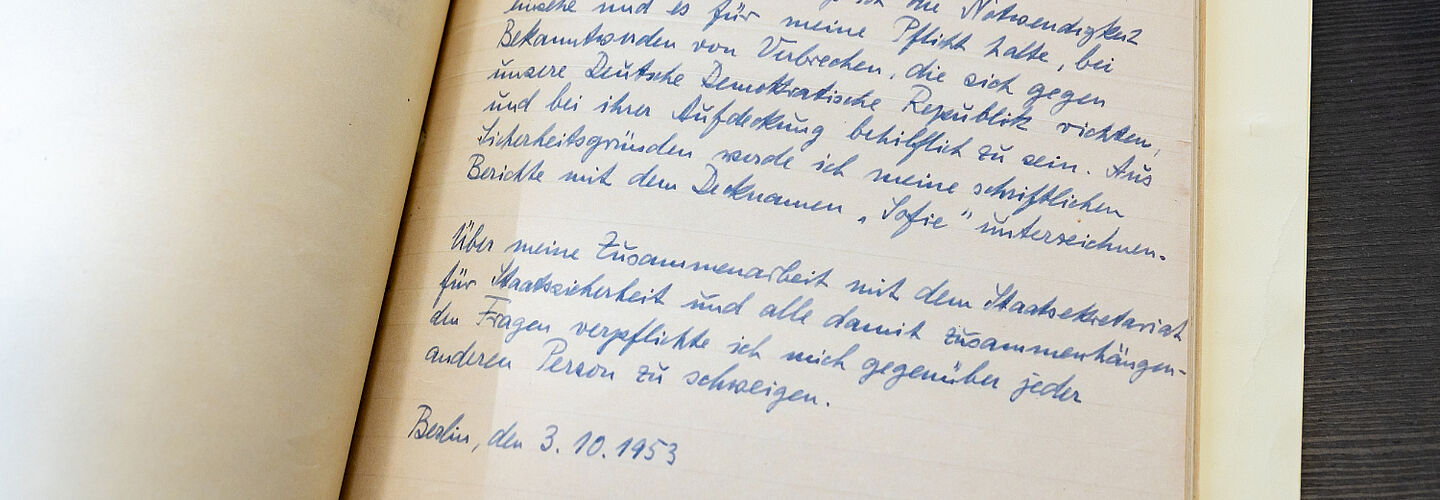 die Notwendigkeit
einsehe und es für meine Pflicht halte, bei
Bekanntwerden von Verbrechen, die sich gegen
unsere Deutsche Demokratische Republik richten,
und bei ihrer Aufdeckung behilflich zu sein. Aus
Sicherheitsgründen werde ich meine schriftlichen
Berichte mit dem Decknamen „Sofie" unterzeichnen.
Über meine Zusammenarbeit mit dem Staatsekretariat
für Staatssicherheit und alle damit zusammenhängen-
den Fragen verpflichte ich mich gegenüber jeder
anderen Person zu schweigen.
Berlin, den 3.10.1953